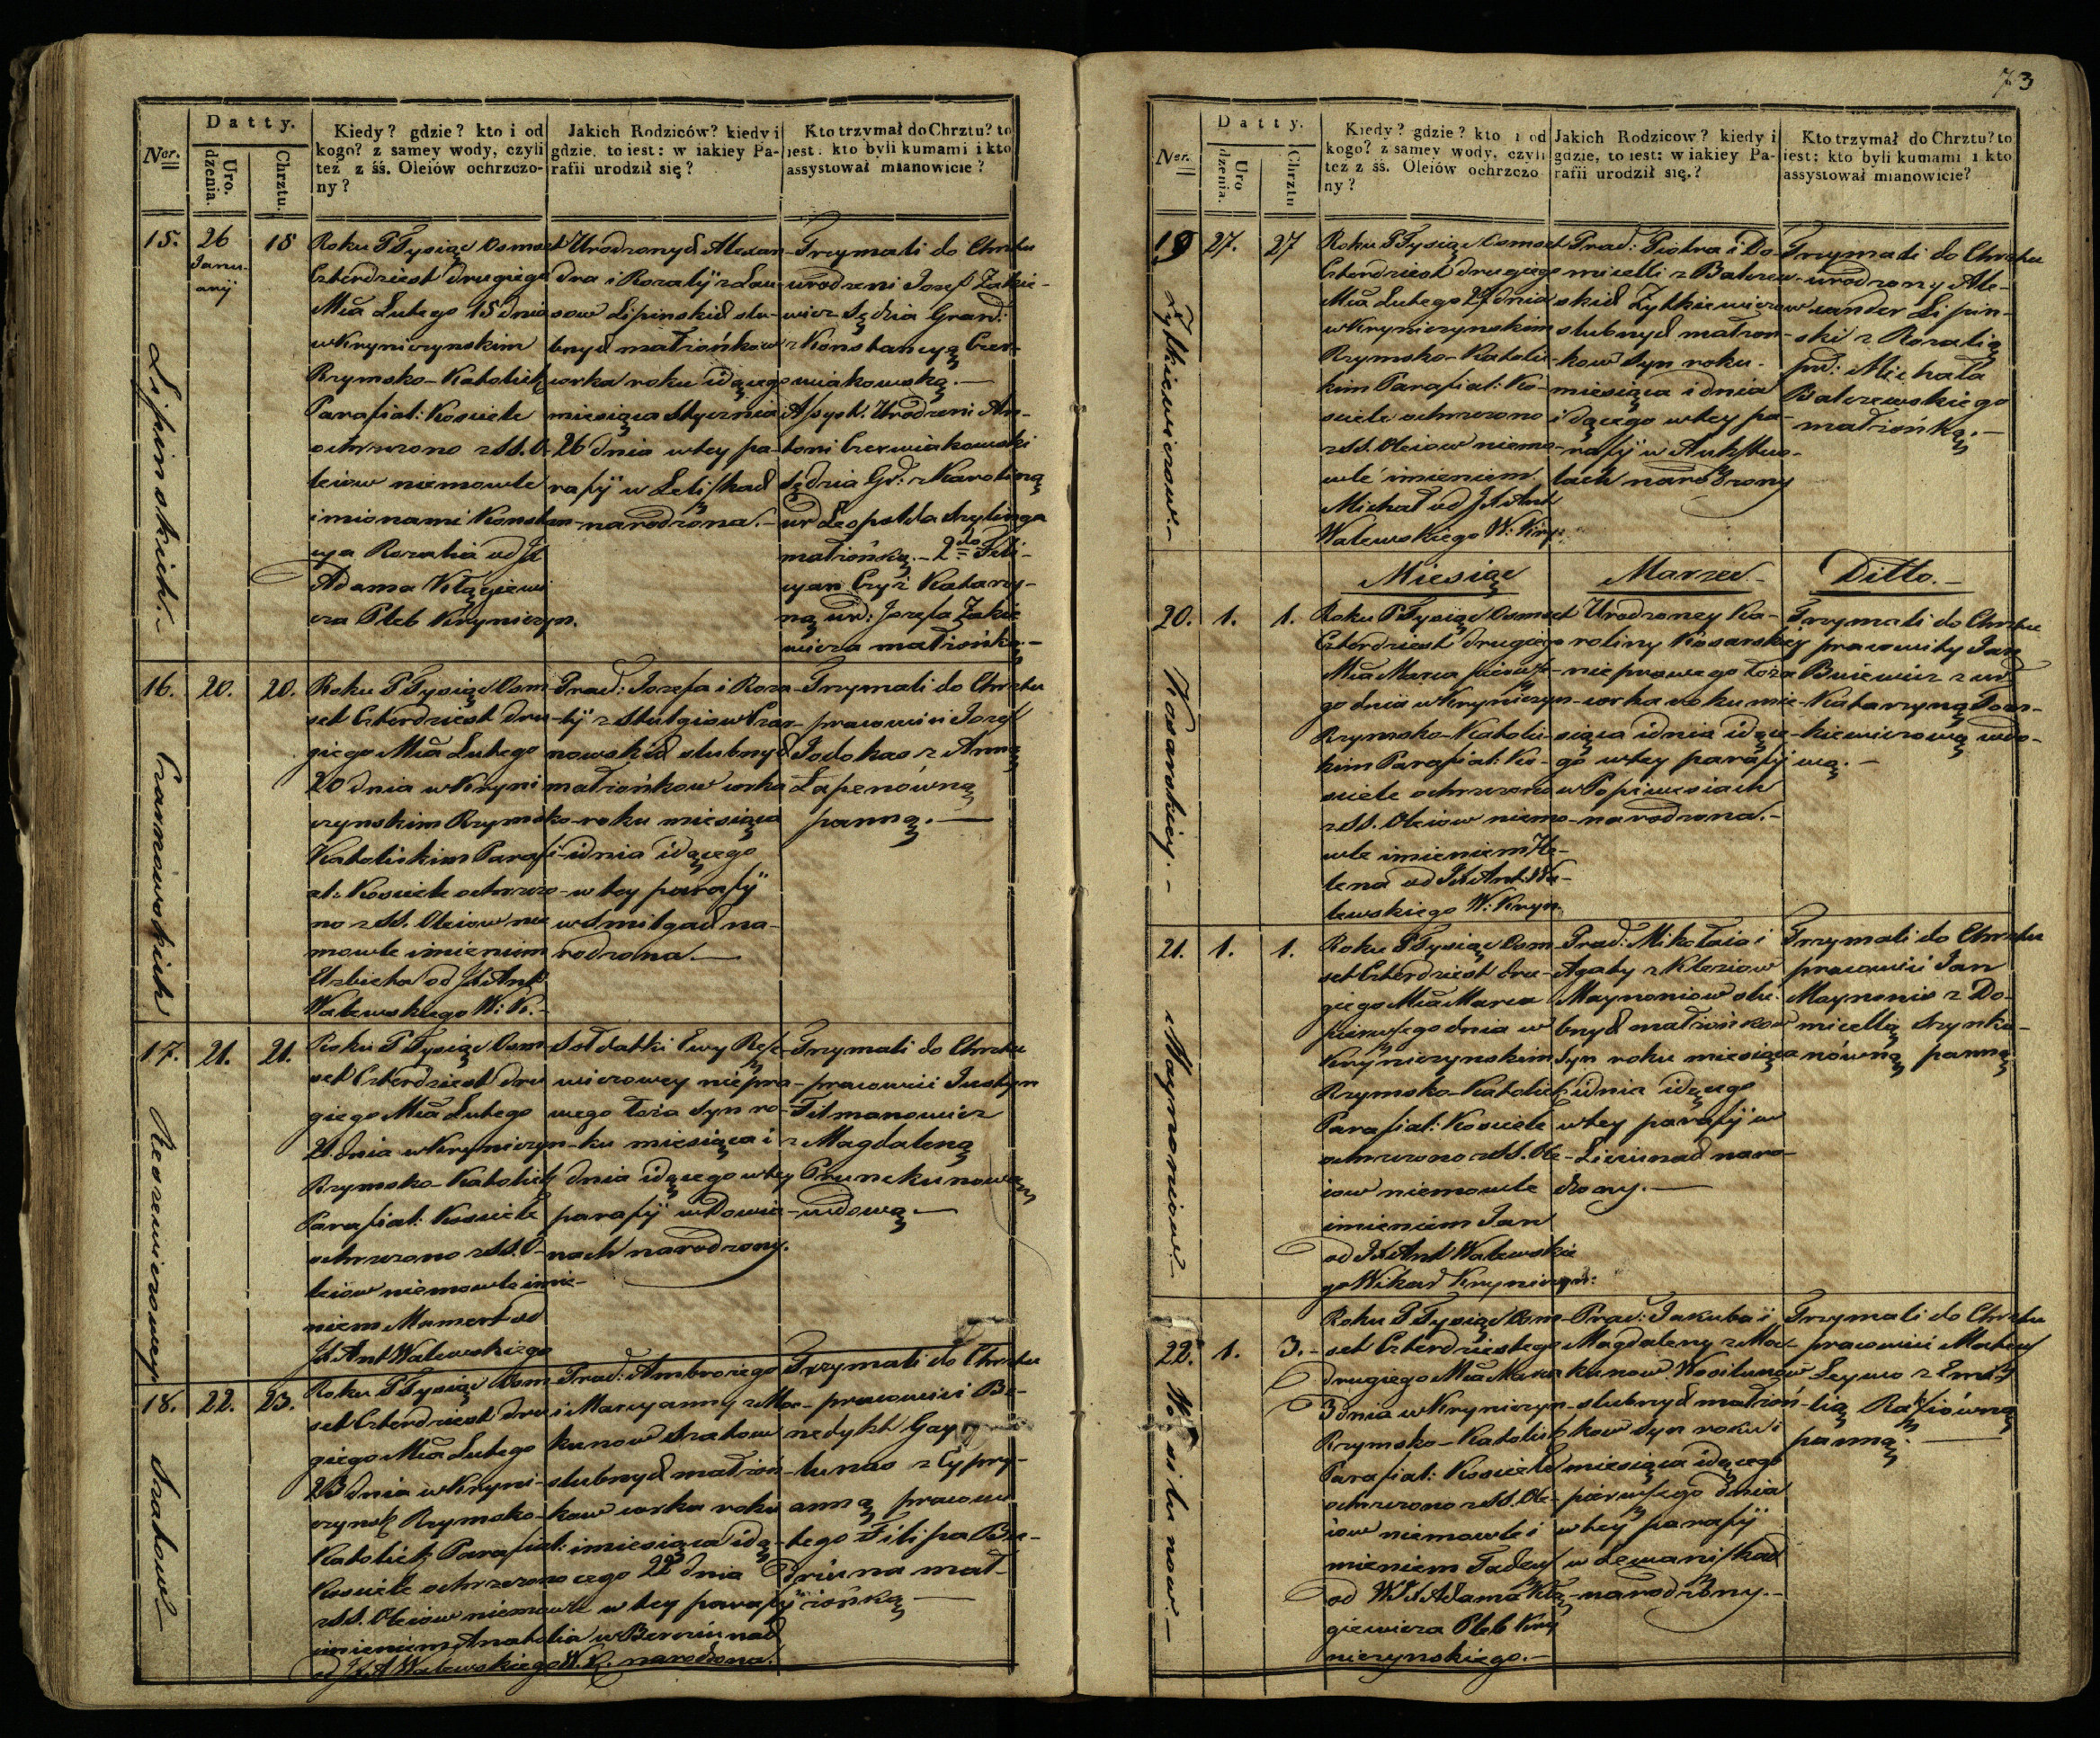 Ner.
Datty.
Uro.
dzenia.
Chrztu.
Kiedy? gdzie? kto i od
kogo? z samey wody, czyli
też z śś. Oleiów ochrzczo-
ny?
Jakich Rodziców? kiedy i
gdzie, to iest: w iakiey Pa-
rafii urodził się?
Kto trzymał do Chrztu? to
iest: kto byli kumami i kto
assystował mianowicie?
15.
Lipinskich.
26
Janu-
arij
15
Roku Tysiąc Osmset
Czterdziest drugiego
Mca Lutego 15 dnia
w Kryniczynskim
Rzymsko-Katolick
Parafial: Kościele
ochrzczono z SS. O-
leiow niemowle
imionami Konstan-
cya Rozalia od Jx
Adama Kłągiewi
cza Pleb Kryniczyn.
Urodzonych Alexan-
dra i Rozalij z Lau-
sow Lipinskich slu-
bnych małżonkow
corka roku idącego
miesiąca Stycznia
26 dnia w tey pa-
rafij w Leliszkach
narodzona.
Trzymali do Chrztu
urodzeni Jozef Zakie-
wicz Sędzia Grand:
z Konstancyą Czer-
wiakowską.
Assyst. Urodzeni An-
toni Czerwiakowski
Sędzia Gr: z Karoliną
ur Leopolda Szylinga
małżonką. 2do Feli-
cyan Czyż z Katarzy-
ną urd: Jozefa Zakie
wicza małżonką.
16.
Czarnowskich
20.
20.
Roku Tysiąc Osm-
set Czterdziest dru-
giego Mca Lutego
20 dnia w Kryni
czynskim Rzymsko-
Katolickim Parafi-
al: Kościele ochrzczo-
no z SS. Oleiow nie
mowle imieniem
Elzbieta od Jx Ant
Walewskiego W: K.
Prac: Jozefa i Roza-
lij z Stulgiow Czar-
nowskich slubnych
małżonkow corka
roku miesiąca
i dnia idącego
w tey parafij
w Smilgach na-
rodzona.
Trzymali do Chrztu
pracowici Jozef
Jodokas z Anną
Łapenówną
panną.
17.
Reszewiczowey
21.
21.
Roku Tysiąc Osm
set Czterdziest dru
giego Mca Lutego
21 dnia w Kryniczyn-
Rzymsko-Katolick
Parafial: Kościele
ochrzczono z SS. O-
leiow niemowle imie-
niem Mamert od
Jx Ant Walewskiego
Sołdatki Ewy Resze-
wiczowey niepra-
wego łoża syn ro-
ku miesiąca i
dnia idącego w tey
parafij w Dowia-
nach narodzony.
Trzymali do Chrztu
pracowici Justyn
Tilmanowicz
z Magdaleną
Prunckunową
wdową.
18.
Szatow
22.
23.
Roku Tysiąc Osm-
set Czterdziest dru
giego Mca Lutego
23 dnia w Kryni-
czynsk Rzymsko-
Katolick Parafial:
Kościele ochrzczono
z SS. Oleiow niemowle
imieniem Anatolia
od Jx A Walewskiego W. K.
Prac: Ambrozego
i Maryanny z Moc-
kunow Szatow
slubnych małżon-
kow corka roku
i miesiąca idą-
cego 22 dnia
w tey parafij
w Berciunach
narodzona.
Trzymali do Chrztu
pracowici Be-
nedykt Gay
lunas z Cypry-
anną pracowi
tego Filipa Pu-
dziuna mał-
żonką
73
Ner.
Datty.
Uro
dzenia.
Chrztu
Kiedy? gdzie? kto i od
kogo? z samey wody, czyli
tez z śś. Oleiów ochrzczo
ny?
Jakich Rodzicow? kiedy i
gdzie, to iest: w iakiey Pa-
rafii urodził się.?
Kto trzymał do Chrztu? to
iest; kto byli kumami i kto
assystował mianowicie?
19
Zytkiewiczow.
27.
27
Roku Tysiąc Osmset
Czterdziest drugiego
Mca Lutego 27 dnia
w Krynierzynskim
Rzymsko-Katolic-
kim Parafial: Ko-
sciele ochrzczono
z SS. Oleiow niemo-
wlé imieniem
Michał od Jx Ant
Walewskiego W: Kry:
Prac: Piotra i Do-
micelli z Balczew-
skich Zytkiewiczow
slubnych małżon-
kow syn roku
miesiąca i dnia
idącego w tey pa-
rafij w Auksztuo-
lach narodzony
Trzymali do Chrztu
urodzony Ale-
xander Lipin-
ski z Rozalią
pr: Michała
Balczewskiego
małżonką.
Miesiąc Marzec Ditto.
20.
Kosarskiey.
1.
1.
Roku Tysiąc Osmset
Czterdziest drugiego
Mca Marca pierwsze-
go dnia w Kryniczyn-
Rzymsko-Katolic-
kim Parafial: Ko-
sciele ochrzczono
z SS. Oleiow niemo-
wle imieniem He-
lena od Jx Ant: Wa-
lewskiego W: Kryn.
Urodzoney Ka-
roliny Kosarskiey
nieprawego łoża
corka roku mie-
siąca i dnia idące-
go w tey parafij
w Popiwesiach
narodzona.
Trzymali do Chrztu
pracowity Jan
Bniewicz z urd
Katarzyną Tosz-
kiewiczową wdo-
wą.
21.
Maynoniow
1.
1.
Roku Tysiąc Osm-
set Czterdziest dru-
giego Mca Marca
pierwszego dnia w
Kryniczynskim
Rzymsko-Katolick
Parafial: Kościele
ochrzczono z SS. Ole-
iow niemowle
imieniem Jan
od Jx Ant Walewskie
go Wikar Kryniczyn:
Prac: Mikołaia i
Agaty z Kleziow
Maynoniow slu-
bnych małżonkow
syn roku miesiąca
i dnia idącego
w tey parafij w
Liciunach naro-
dzony.
Trzymali do Chrztu
pracowici Jan
Maynonis z Do-
micellą Szynku-
nówną panną
22.
Wosilunow
1.
3.
Roku Tysiąc Osm-
set Czterdziestego
drugiego Mca Marca
3 dnia w Kryniczyn-
Rzymsko-Katolick
Parafial: Kościele
ochrzczono z SS. Ole-
iow niemowle i
mieniem Tadeusz
od W Jx Adama Kłą-
giewicza Pleb Kry
niczynskiego.
Prac: Jakuba i
Magdaleny z Moc-
kunow Wosilunow
slubnych małżon-
kow syn roku i
miesiąca idącego
pierwszego dnia
w tey parafij
w Lewaniszkach
narodzony.
Trzymali do Chrztu
pracowici Mateusz
Leywo z Emi-
lią Raziówną
panną.